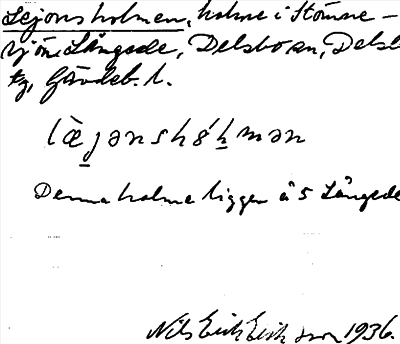 Lejonsholmen, holme i Stömne-
sjön Långsele, Delsbo sn, Delsb
tg, Gävleb. l.
læjənshóḷmən
Denna holme ligger å 5 Långsele
Nils Erik Eriksson 1936.